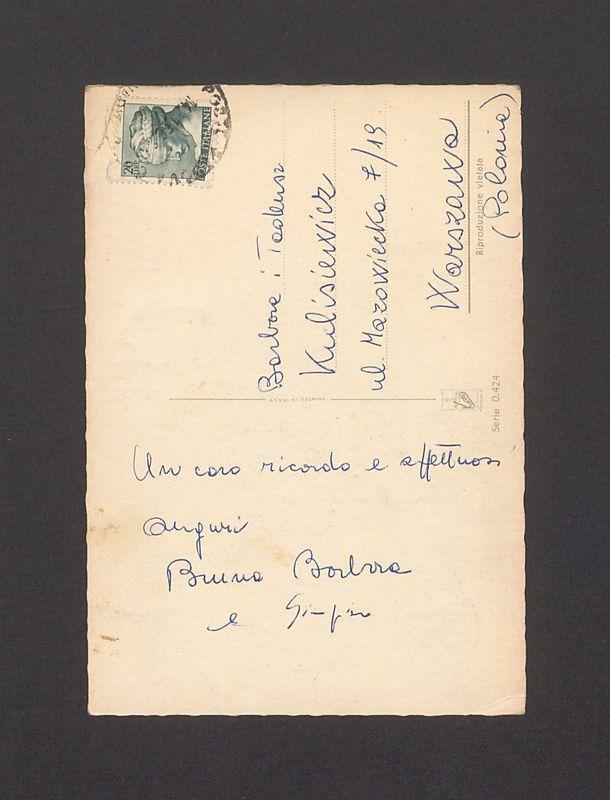 20
LIRE
POSTE ITALIANE
Barbara i Tadeusz
Kulisiewicz
ul Mazowiecka 7/19
Warszawa
(Polonia)
Riproduzione vietata
PRINTED IN ITALY
Serie D.424
Un caro ricordo e affettuosi
auguri
Bruna Barbara
e